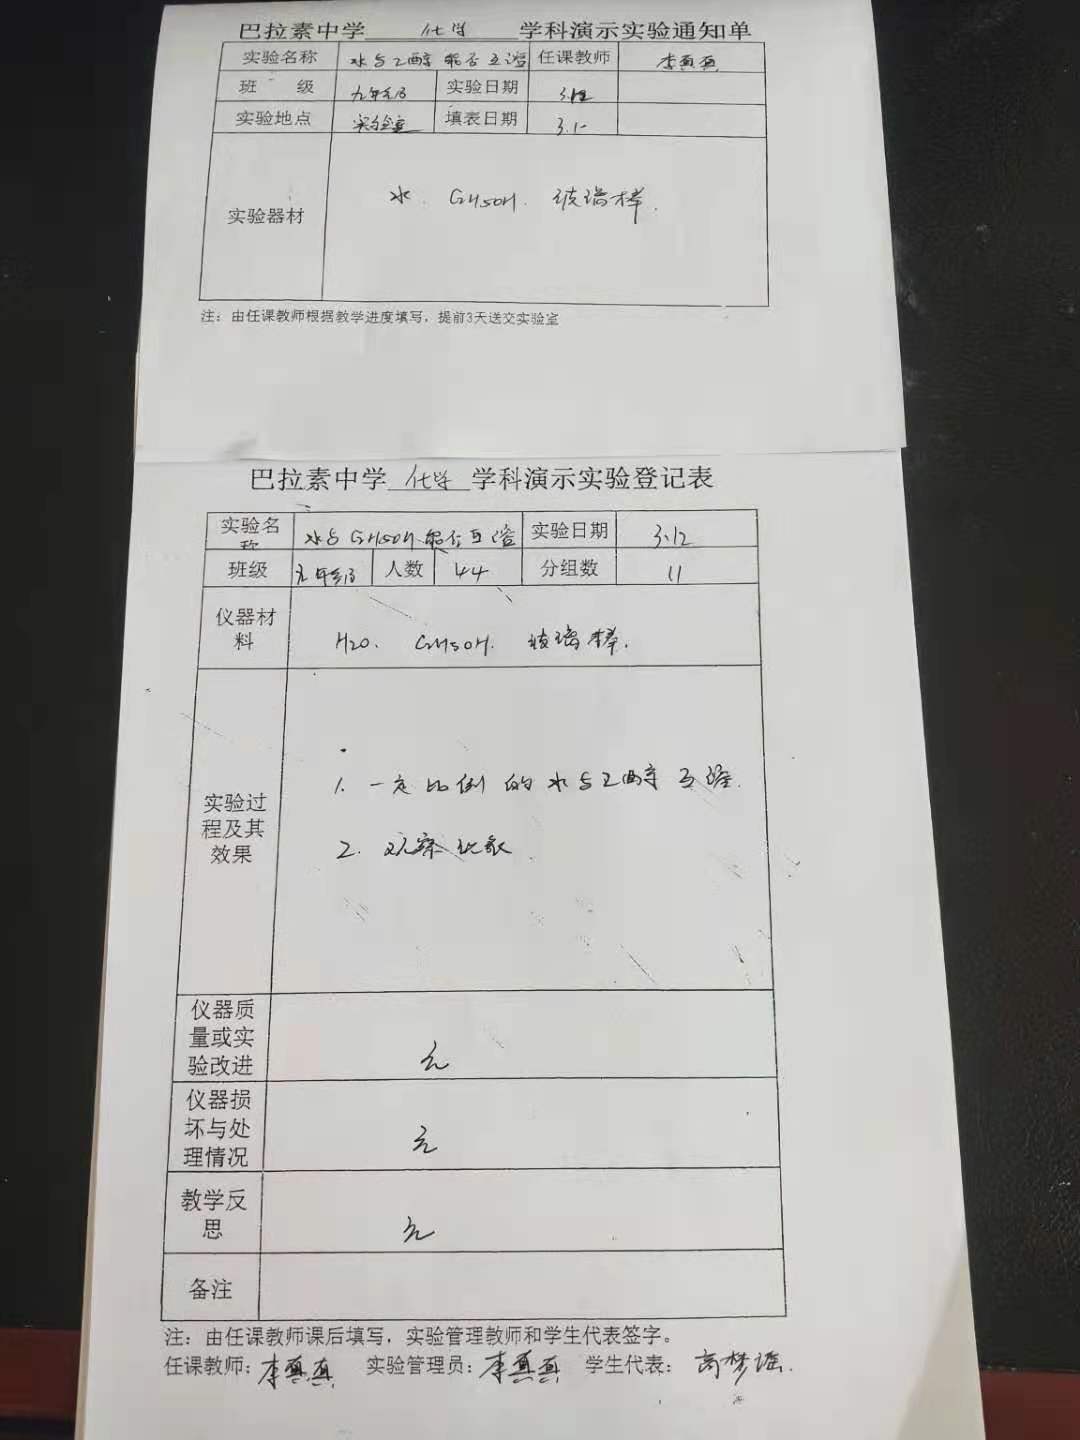 巴拉素中学 化学 学科演示实验通知单
实验名称 水与乙醇能否互溶 任课教师 李真真
班 级 九年级 实验日期 3.12
实验地点 实验室 填表日期 3.1
实验器材 水. C2H5OH. 玻璃棒.
注：由任课教师根据教学进度填写，提前3天送交实验室
巴拉素中学 化学 学科演示实验登记表
实验名称 水与C2H5OH能否互溶 实验日期 3.12
班级 九年级 人数 44 分组数 11
仪器材料 H2O. C2H5OH. 玻璃棒.
实验过程及其效果
1. 一定比例的水与乙醇互溶.
2. 观察现象
仪器质量或实验改进 无
仪器损坏与处理情况 无
教学反思 无
备注
注：由任课教师课后填写，实验管理教师和学生代表签字。
任课教师：李真真 实验管理员：李真真 学生代表：高梦瑶.